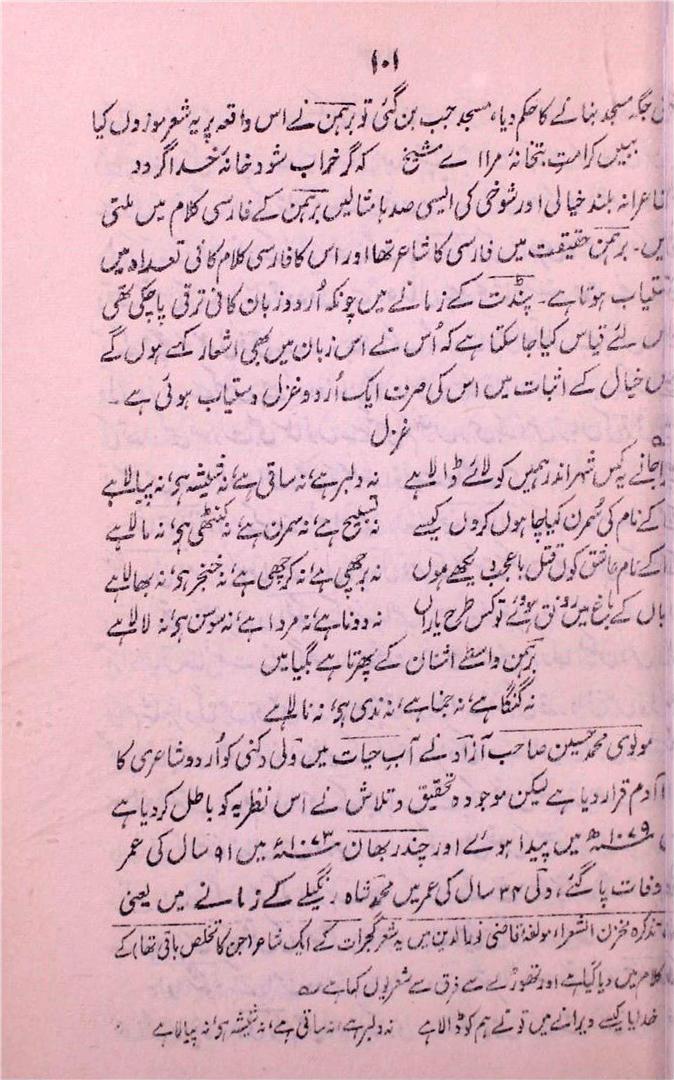 ۱۰۱
جگہ مسجد بنانے کا حکم دیا، مسجد جب بن گئی تو برہمن نے اس واقعہ پر یہ شعر موزوں کیا
ببیں کرامتِ بتخانۂ مرا اے شیخ کہ گر خراب شود خانۂ خدا گردد
شاعرانہ بلند خیالی اور شوخی کی ایسی صدہا مثالیں برہمن کے فارسی کلام میں ملتی
ہیں۔ برہمن حقیقت میں فارسی کا شاعر تھا اور اس کا فارسی کلام کافی تعداد میں
دستیاب ہوتا ہے۔ پنڈت کے زمانے میں چونکہ اُردو زبان کافی ترقی پا چکی تھی
اس لئے قیاس کیا جا سکتا ہے کہ اُس نے اس زبان میں بھی اشعار کہے ہوں گے
اس خیال کے اثبات میں اس کی صرف ایک اُردو غزل دستیاب ہوئی ہے
غزل
جانے یہ کس شہر اندر ہمیں کو لائے ڈالا ہے نہ دلبر ہے، نہ ساقی ہے، نہ شیشہ ہو، نہ پیالا ہے
کے نام کی سُمرن کیا چاہوں کروں کیسے نہ تسبیح ہے، نہ سمرن ہے، نہ کنٹھی ہو، نہ مالا ہے
کے نام عاشق کوں قتل باعجب دیکھے ہوں نہ برچھی ہے، نہ کرچھی ہے، نہ خنجر ہو، نہ بھالا ہے
کے باغ میں رونق ہوئے تو کس طرح یاراں نہ دونا ہے، نہ مروا ہے، نہ سوسن ہو، نہ لالا ہے
برہمن واسطے اشنان کے پھرتا ہے بگیا میں
نہ گنگا ہے، نہ جمنا ہے، نہ ندی ہو، نہ نالا ہے
مولوی محمد حسین صاحب آزاد نے آب حیات میں ولی دکنی کو اُردو شاعری کا
آدم قرار دیا ہے لیکن موجودہ تحقیق و تلاش نے اس نظریہ کو باطل کر دیا ہے
۱۰۷۹ھ میں پیدا ہوئے اور چندر بھان ۱۰۷۳ھ میں ۹۱ سال کی عمر
وفات پا گئے، ولی ۳۴ سال کی عمر میں محمد شاہ رنگیلے کے زمانے میں یعنی
تذکرہ مخزن الشعراء مولفۂ قاضی نورالدین میں یہ شعر گجرات کے ایک شاعر (جن کا تخلص باقی تھا) کے
کلام میں دیا گیا ہے اور تھوڑے سے فرق سے شعر یوں کہا ہے
خدایا کیسے ویرانے میں تو نے ہم کو ڈالا ہے نہ دلبر ہے، نہ ساقی ہے، نہ شیشہ ہو، نہ پیالا ہے